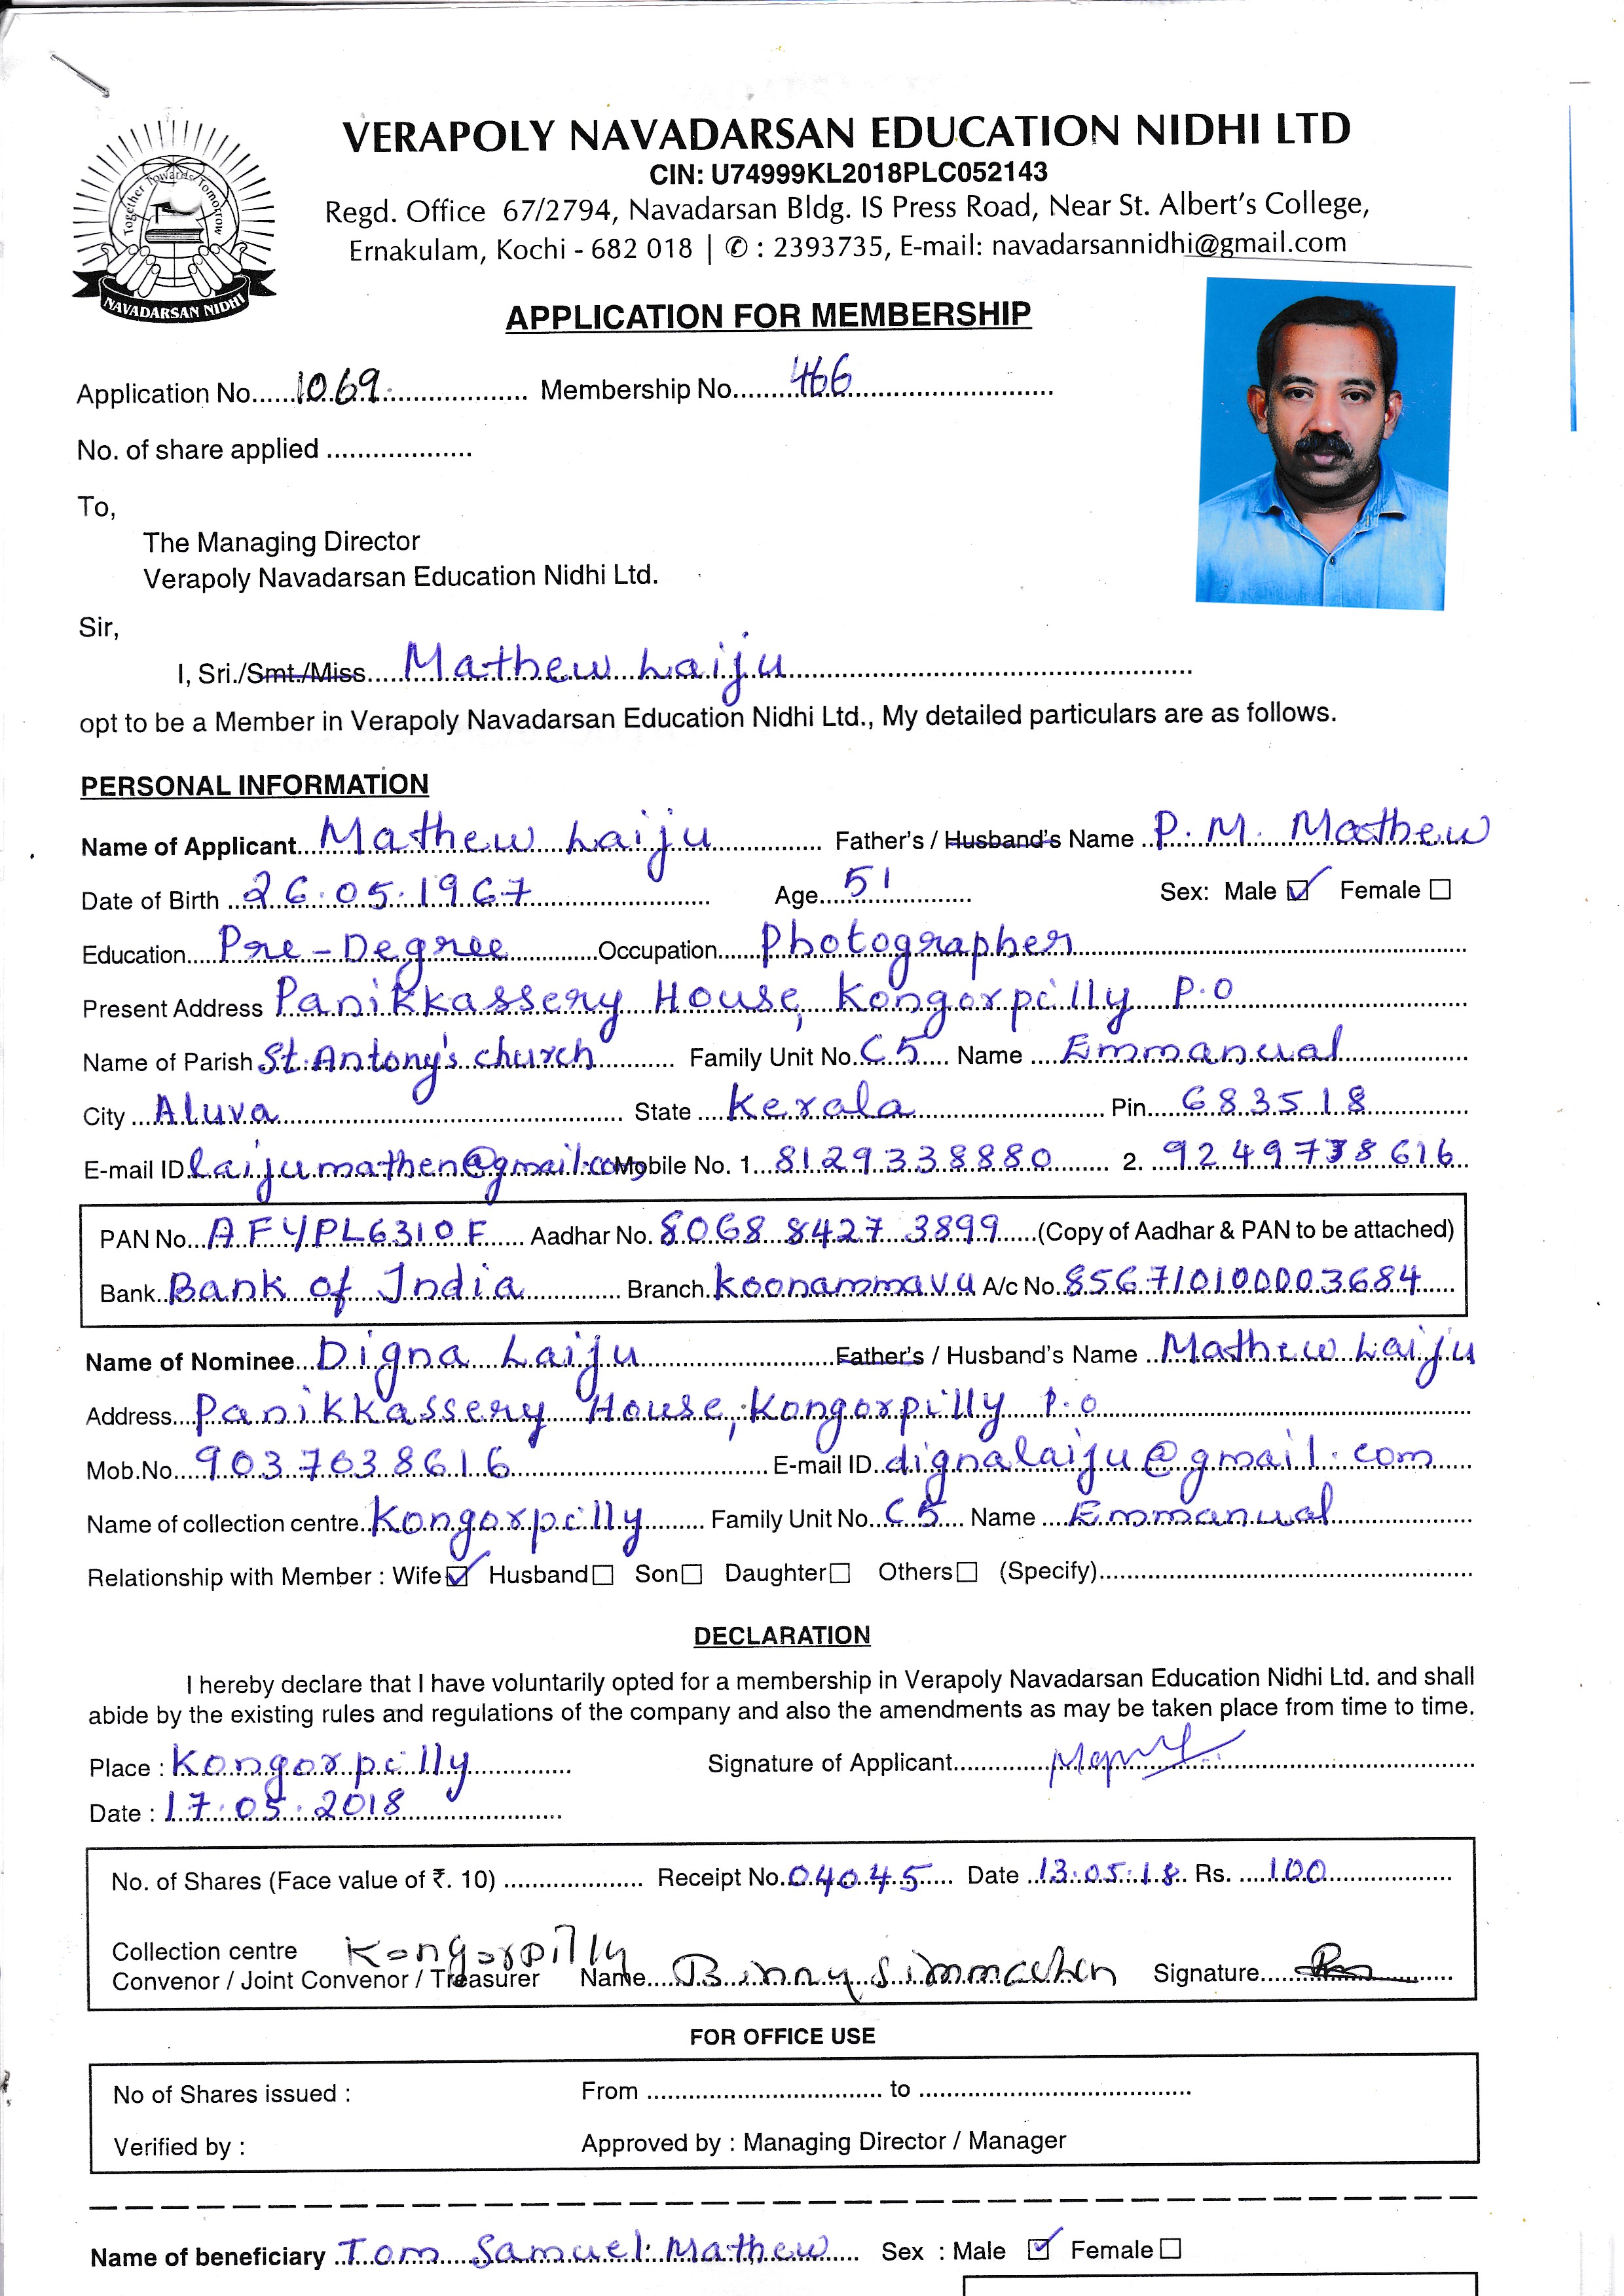 VERAPOLY NAVADARSAN EDUCATION NIDHI LTD
CIN: U74999KL2018PLC052143
Regd. Office 67/2794, Navadarsan Bldg. IS Press Road, Near St. Albert's College,
Ernakulam, Kochi - 682 018 | ✆ : 2393735, E-mail: navadarsannidhi@gmail.com
Together Towards Tomorrow
NAVADARSAN NIDHI
APPLICATION FOR MEMBERSHIP
Application No. 1069 Membership No. 466
No. of share applied
To,
The Managing Director
Verapoly Navadarsan Education Nidhi Ltd.
Sir,
I, Sri./Smt./Miss Mathew Laiju
opt to be a Member in Verapoly Navadarsan Education Nidhi Ltd., My detailed particulars are as follows.
PERSONAL INFORMATION
Name of Applicant Mathew Laiju Father's / Husband's Name P. M. Mathew
Date of Birth 26.05.1967 Age 51 Sex: Male ☑ Female ☐
Education Pre-Degree Occupation Photographer
Present Address Panikkassery House, Kongorpilly P.O
Name of Parish St. Antony's church Family Unit No. C5 Name Emmanual
City Aluva State Kerala Pin 683518
E-mail ID laijumathen@gmail.com Mobile No. 1. 8129338880 2. 9249738616
PAN No. AFYPL6310F Aadhar No. 8068 8427 3899 (Copy of Aadhar & PAN to be attached)
Bank Bank of India Branch Koonammavu A/c No. 856710100003684
Name of Nominee Digna Laiju Father's / Husband's Name Mathew Laiju
Address Panikkassery House, Kongorpilly P.O
Mob.No. 9037638616 E-mail ID dignalaiju@gmail.com
Name of collection centre Kongorpilly Family Unit No. C5 Name Emmanual
Relationship with Member : Wife ☑ Husband ☐ Son ☐ Daughter ☐ Others ☐ (Specify)
DECLARATION
I hereby declare that I have voluntarily opted for a membership in Verapoly Navadarsan Education Nidhi Ltd. and shall
abide by the existing rules and regulations of the company and also the amendments as may be taken place from time to time.
Place : Kongorpilly Signature of Applicant
Date : 17.05.2018
No. of Shares (Face value of ₹. 10) Receipt No. 04045 Date 13.05.18 Rs. 100
Collection centre Kongorpilly
Convenor / Joint Convenor / Treasurer Name Binny Simmachen Signature
FOR OFFICE USE
No of Shares issued : From to
Verified by : Approved by : Managing Director / Manager
Name of beneficiary Tom Samuel Mathew Sex : Male ☑ Female ☐